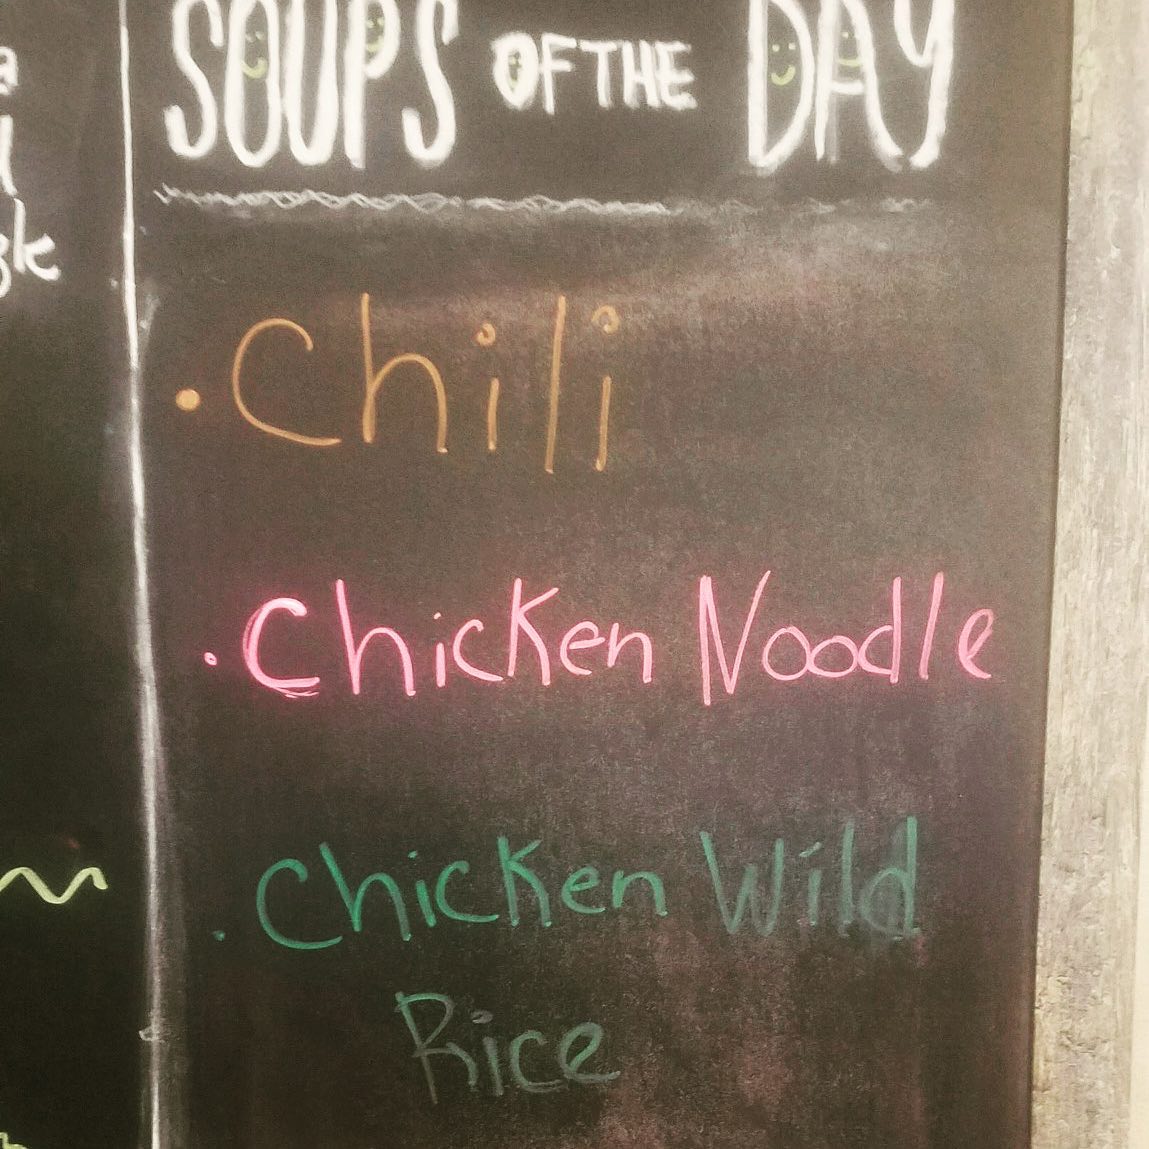 SOUPS OF THE DAY
· Chili
· Chicken Noodle
· Chicken Wild
Rice